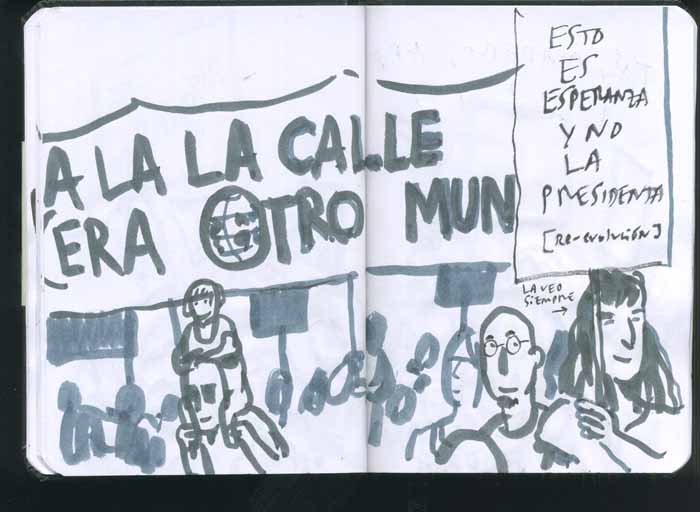 A LA LA CALLE
ERA OTRO MUN
ESTO
ES
ESPERANZA
Y NO
LA
PRESIDENTA
[RE-EVOLUCIÓN]
LA VEO
SIEMPRE